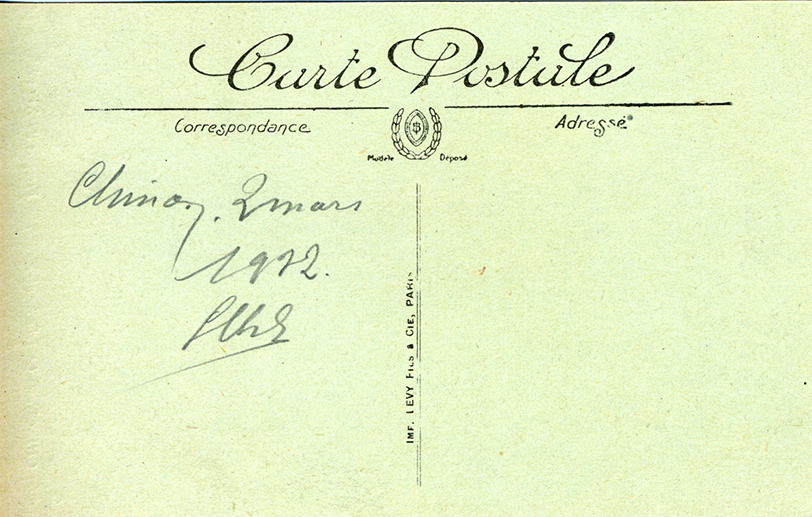 Carte Postale
Correspondance
Adresse
Modèle Déposé
Chimay, 2 mars
19
IMP. LEVY FILS & CIE, PARIS